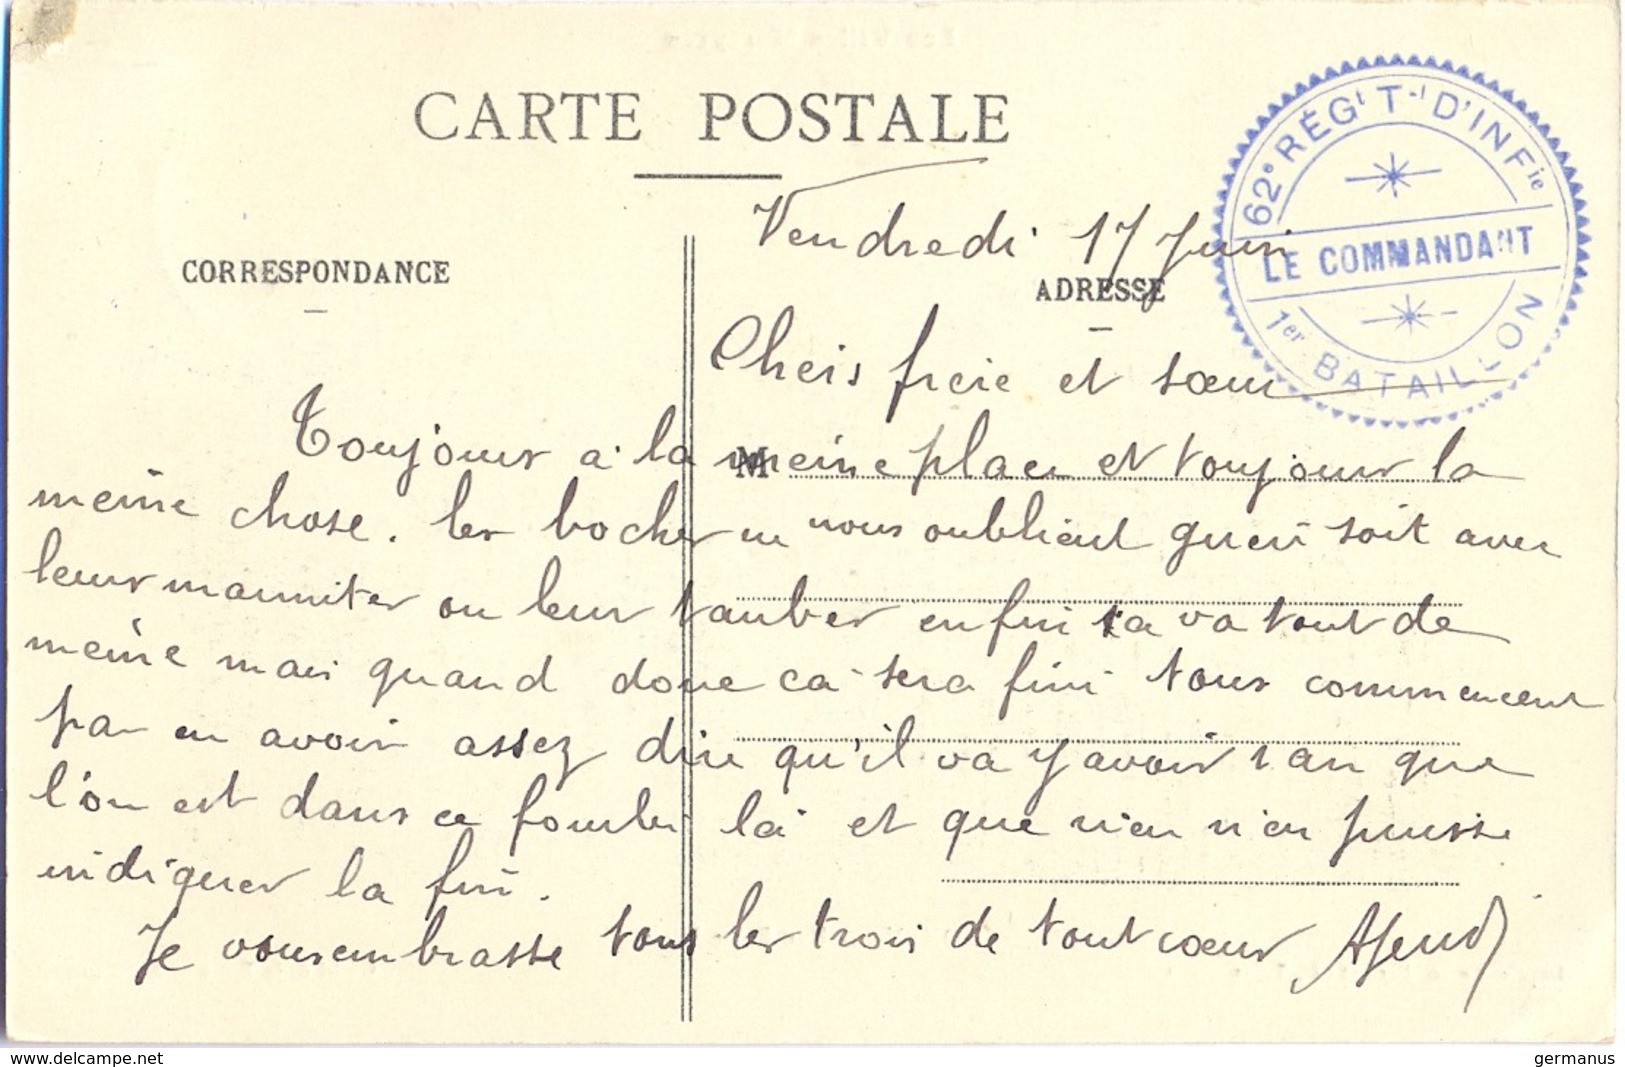 CARTE POSTALE
62e RÉGt T-l D'INFie
LE COMMANDANT
1er BATAILLON
CORRESPONDANCE
ADRESSE
Vendredi 17 Juin
Cheis freie et sœur
Toujours a la meine place et toujours la
M
meine chose. les boches nous oublient quen soit avec
leur marmites ou leur taubes enfin sa va tout de
meine mais quand donc ca sera fini tous commencent
par en avoir assez dire qu'il va y avoir 2 an que
l'on est dans ce fourbi là et que rien n'en puisse
indiquer la fin.
Je vous embrasse tous les trois de tout cœur
www.delcampe.net
germanus